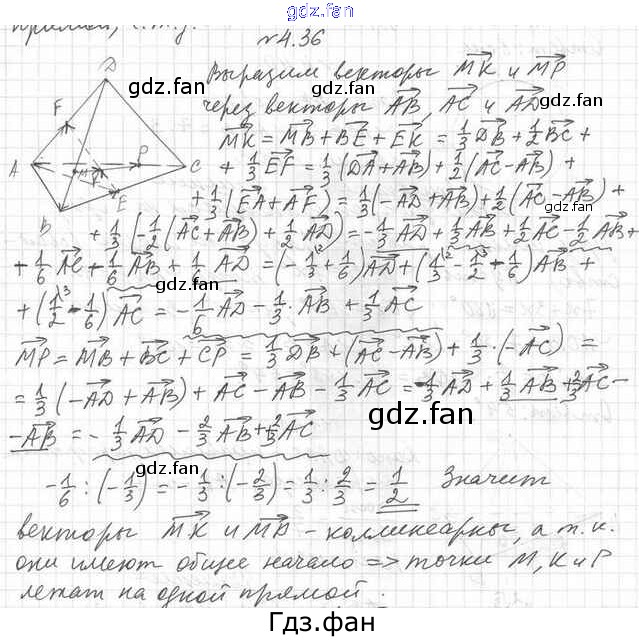 gdz.fan
прямой, ч.т.д.
№4.36
Выразим векторы MK и MP
gdz.fan
через векторы AB, AC и AD
gdz.fan
MK = MB + BE + EK = 1/3 DB + 1/2 BC +
+ 1/3 EF = 1/3 (DA + AB) + 1/2 (AC - AB) +
+ 1/3 (EA + AF) = 1/3 (-AD + AB) + 1/2 (AC - AB) +
+ 1/3 (-1/2 (AC + AB) + 1/2 AD) = -1/3 AD + 1/3 AB + 1/2 AC - 1/2 AB +
+ 1/6 AC + 1/6 AB + 1/6 AD = (-1/3 + 1/6) AD + (1/3 - 1/2 - 1/6) AB +
gdz.fan
+ (1/2 - 1/6) AC = -1/6 AD - 1/3 · AB + 1/3 AC
MP = MB + BC + CP = 1/3 DB + (AC - AB) + 1/3 · (-AC) =
gdz.fan
= 1/3 (-AD + AB) + AC - AB - 1/3 AC = -1/3 AD + 1/3 AB + 2/3 AC -
gdz.fan
- AB = -1/3 AD - 2/3 AB + 2/3 AC
gdz.fan
-1/6 : (-1/3) = -1/3 : (-2/3) = 1/3 : 2/3 = 1/2 Значит
векторы MK и MP - коллинеарны, а т.к.
gdz.fan
они имеют общее начало => точки M, K и P
лежат на одной прямой.
Гдз.фан
D
F
A
M
K
P
C
E
B